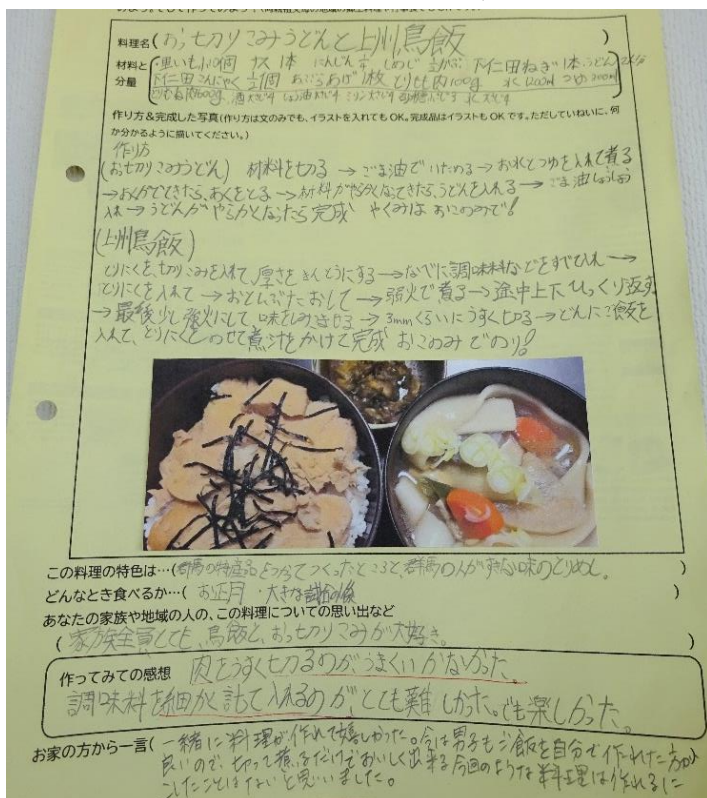 料理名(おっ切りこみうどんと上州鳥飯)
材料と ・里いも小10個 大根 1本 にんじん しめじ ごぼう 下仁田ねぎ 1本 うどん2人分
分量 下仁田こんにゃく 個 あぶらあげ1枚 とりもも肉100g 水1200ml つゆ200ml
とりむね肉600g 酒大さじ しょう油大さじ ミリン大さじ 砂糖 水
作り方&完成した写真(作り方は文のみでも、イラストを入れてもOK。完成品はイラストもOKです。ただしていねいに、何
か分かるように描いてください。)
作り方
(おっ切りこみうどん) 材料を切る → ごま油でいためる → お水とつゆを入れて煮る
→ あくがでてきたら、あくをとる → 材料がやらかくなってきたら、うどんを入れる → ごま油しょうしょう
入れ → うどんがやらかくなったら完成 やくみはおこのみで!
(上州鳥飯)
とりにくを、切りこみを入れて、厚さをきんとうにする → なべに調味料などをすべて入れ →
とりにくを入れて → おとしぶたおして → 弱火で煮る → 途中上下ひっくり返す
→ 最後少し強火にして、味をしみさせる → 3mmくらいにうすく切る → どんにご飯を
入れて、とりにくをのせて煮汁をかけて完成 おこのみでのり!
この料理の特色は…(群馬の特産品をつかってつくったところと、群馬の人がすきな味のとりめし。)
どんなとき食べるか…(お正月・大きな の後)
あなたの家族や地域の人の、この料理についての思い出など
(家族全員とても、鳥飯と、おっ切りこみが大好き。)
作ってみての感想 肉をうすく切るのが、うまくいかなかった。
調味料を細かく計って入れるのが、とても難しかった。でも楽しかった。
お家の方から一言(一緒に料理が作れて嬉しかった。今は男子もご飯を自分で作れた方が
良いので、切って煮るだけでおいしく出来る今回のような料理は作れるに
こしたことはないと思いました。